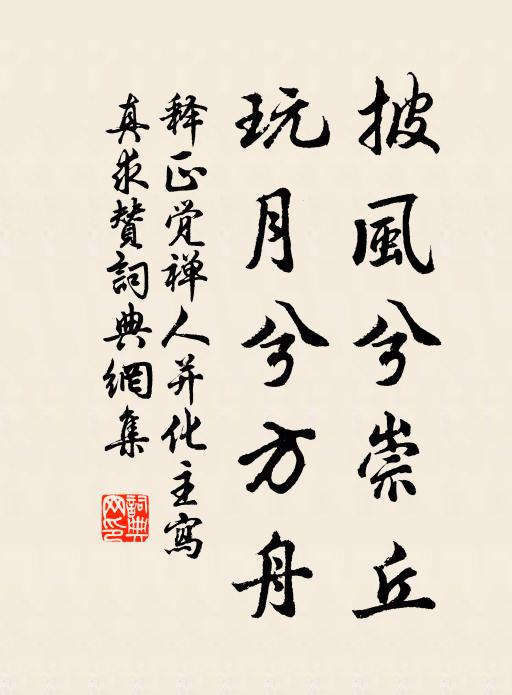 披風兮崇丘
玩月兮方舟
释正觉禅人并化主寫
真求贊詞典網集
詞典網印